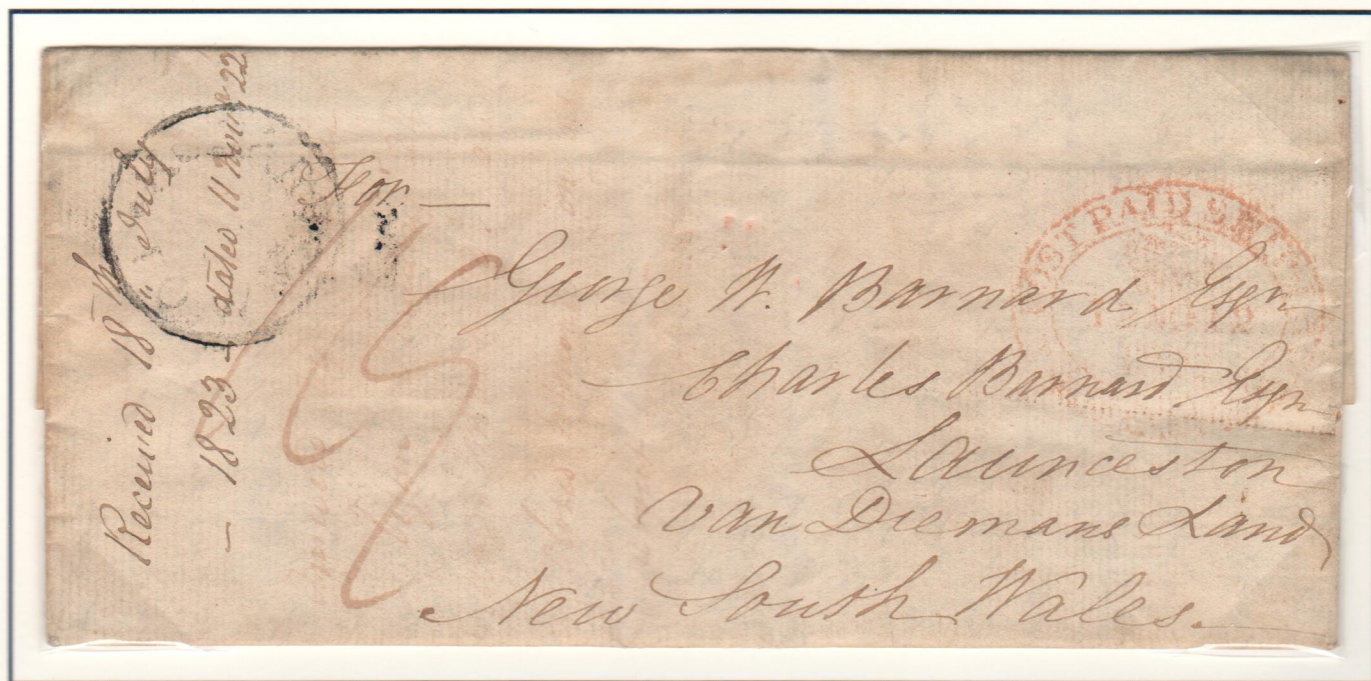 Received 18th July
– 1823 – dated 11 Decr 22
For –
George W. Barnard Esqr
Charles Barnard Esqr
Launceston
Van Diemans Land
New South Wales.
PAID